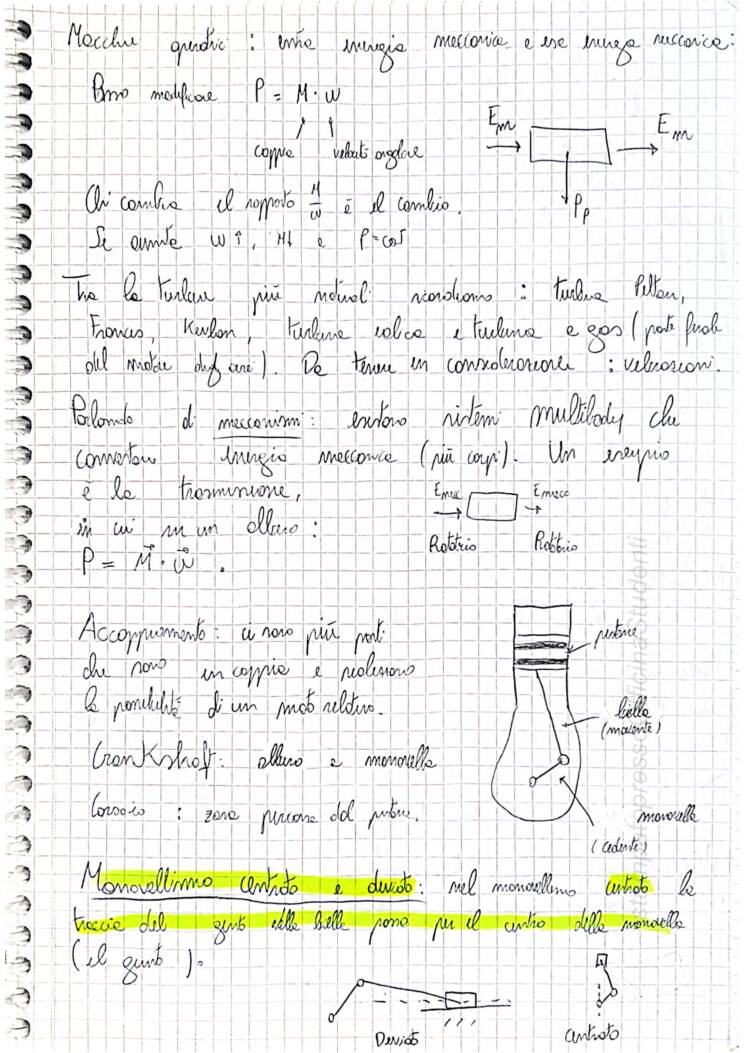 Macchine operatrici : entra energia meccanica e esce energia meccanica:
Posso modificare P = M · ω
coppia velocità angolare
Em Em
Pp
Chi cambia il rapporto M/ω è il cambio.
Se aumenta ω↑, M↓ e P=cost
Tra le turbine più naturali ricordiamo : turbina Pelton,
Francis, Kaplan, turbina eolica e turbina a gas (parte finale
del motore degli aerei). Da tenere in considerazione : vibrazioni.
Parlando di meccanismi: esistono sistemi multibody che
convertono energia meccanica (più corpi). Un esempio
è la trasmissione,
Emecc Emecc
in cui su un albero:
Rotatorio Rotatorio
P = M⃗ · ω⃗ .
Accoppiamento: ci sono più parti
pistone
che sono in coppia e realizzano
la possibilità di un moto relativo.
biella
(movente)
CranKshaft: albero a manovella
Corsoio : zona percorsa dal pistone.
manovella
(cedente)
Manovellismo centrato e deviato: nel manovellismo centrato la
traccia del giunto della biella passa per il centro della manovella
(il giunto ).
Deviato Centrato